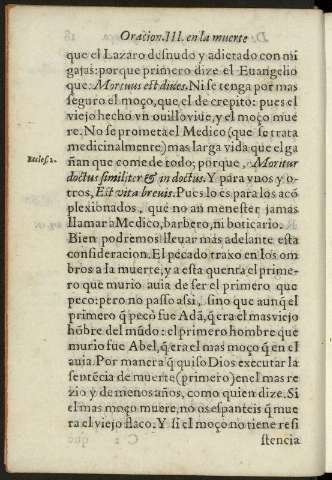 Oracion.III. en la muerte
que el Lazaro desnudo y adietado con mi
gajas: porque primero dize el Euangelio
que. Mortuus est diues. Ni se tenga por mas
seguro el moço, que, el de crepito: pues el
viejo hecho vn ouillo viue, y el moço mue
re. No se prometa el Medico (que se trata
medicinalmente) mas larga vida que el ga
Eccles. 2.
ñan que come de todo; porque, Moritur
doctus similiter & in doctus. Y para vnos, y o-
tros, Est vita breuis. Pues lo es para los acõ
plexionados, que no an menester jamas
llamar a Medico, barbero, ni boticario.
Bien podremos lleuar mas adelante esta
consideracion. El pecado traxo en los om
bros a la muerte, y a esta quenta el prime-
ro que murio auia de ser el primero que
peco: pero no passo assi, sino que aunq̃ el
primero q̃ pecò fue Adã, q̃ era el mas viejo
hõbre del mũdo: el primero hombre que
murio fue Abel, q̃ era el mas moço q̃ en el
auia. Por manera q̃ quiso Dios executar la
sentẽcia de muerte (primero) en el mas re
zio y de menos años, como quien dize. Si
el mas moço muere, no os espanteis q̃ mue
ra el viejo flaco. Y si el moço no tiene resi
stencia